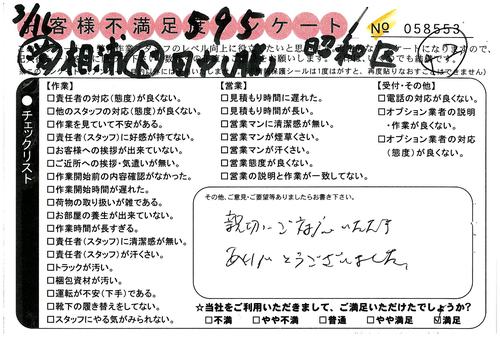 3/16
お客様不満足度アンケート
595
№ 058553
昭和区
チェックリスト
【作業】
□責任者の対応(態度)が良くない。
□他のスタッフの対応(態度)が良くない。
□作業を見ていて不安がある。
□責任者(スタッフ)に好感が持てない。
□お客様への挨拶が出来ていない。
□ご近所への挨拶・気遣いが無い。
□作業開始前の内容確認がなかった。
□作業開始時間が遅れた。
□荷物の取り扱いが雑である。
□お部屋の養生が出来ていない。
□作業時間が長すぎる。
□責任者(スタッフ)に清潔感が無い。
□責任者(スタッフ)が汗くさい。
□トラックが汚い。
□梱包資材が汚い。
□運転が不安(下手)である。
□靴下の履き替えをしてない。
□スタッフにやる気がみられない。
【営業】
□見積もり時間に遅れた。
□見積もり時間が長い。
□営業マンに清潔感が無い。
□営業マンが煙草くさい。
□営業マンが汗くさい。
□営業態度が良くない。
□営業の説明と作業が一致してない。
【受付・その他】
□電話の対応が良くない。
□オプション業者の説明
・作業が良くない。
□オプション業者の対応
(態度)が良くない。
その他、ご意見・ご要望等ありましたらお書き下さい。
親切にご対応いただき
ありがとうございました。
☆当社をご利用いただきまして、ご満足いただけたでしょうか?
□不満 □やや不満 □普通 □やや満足 ☑満足